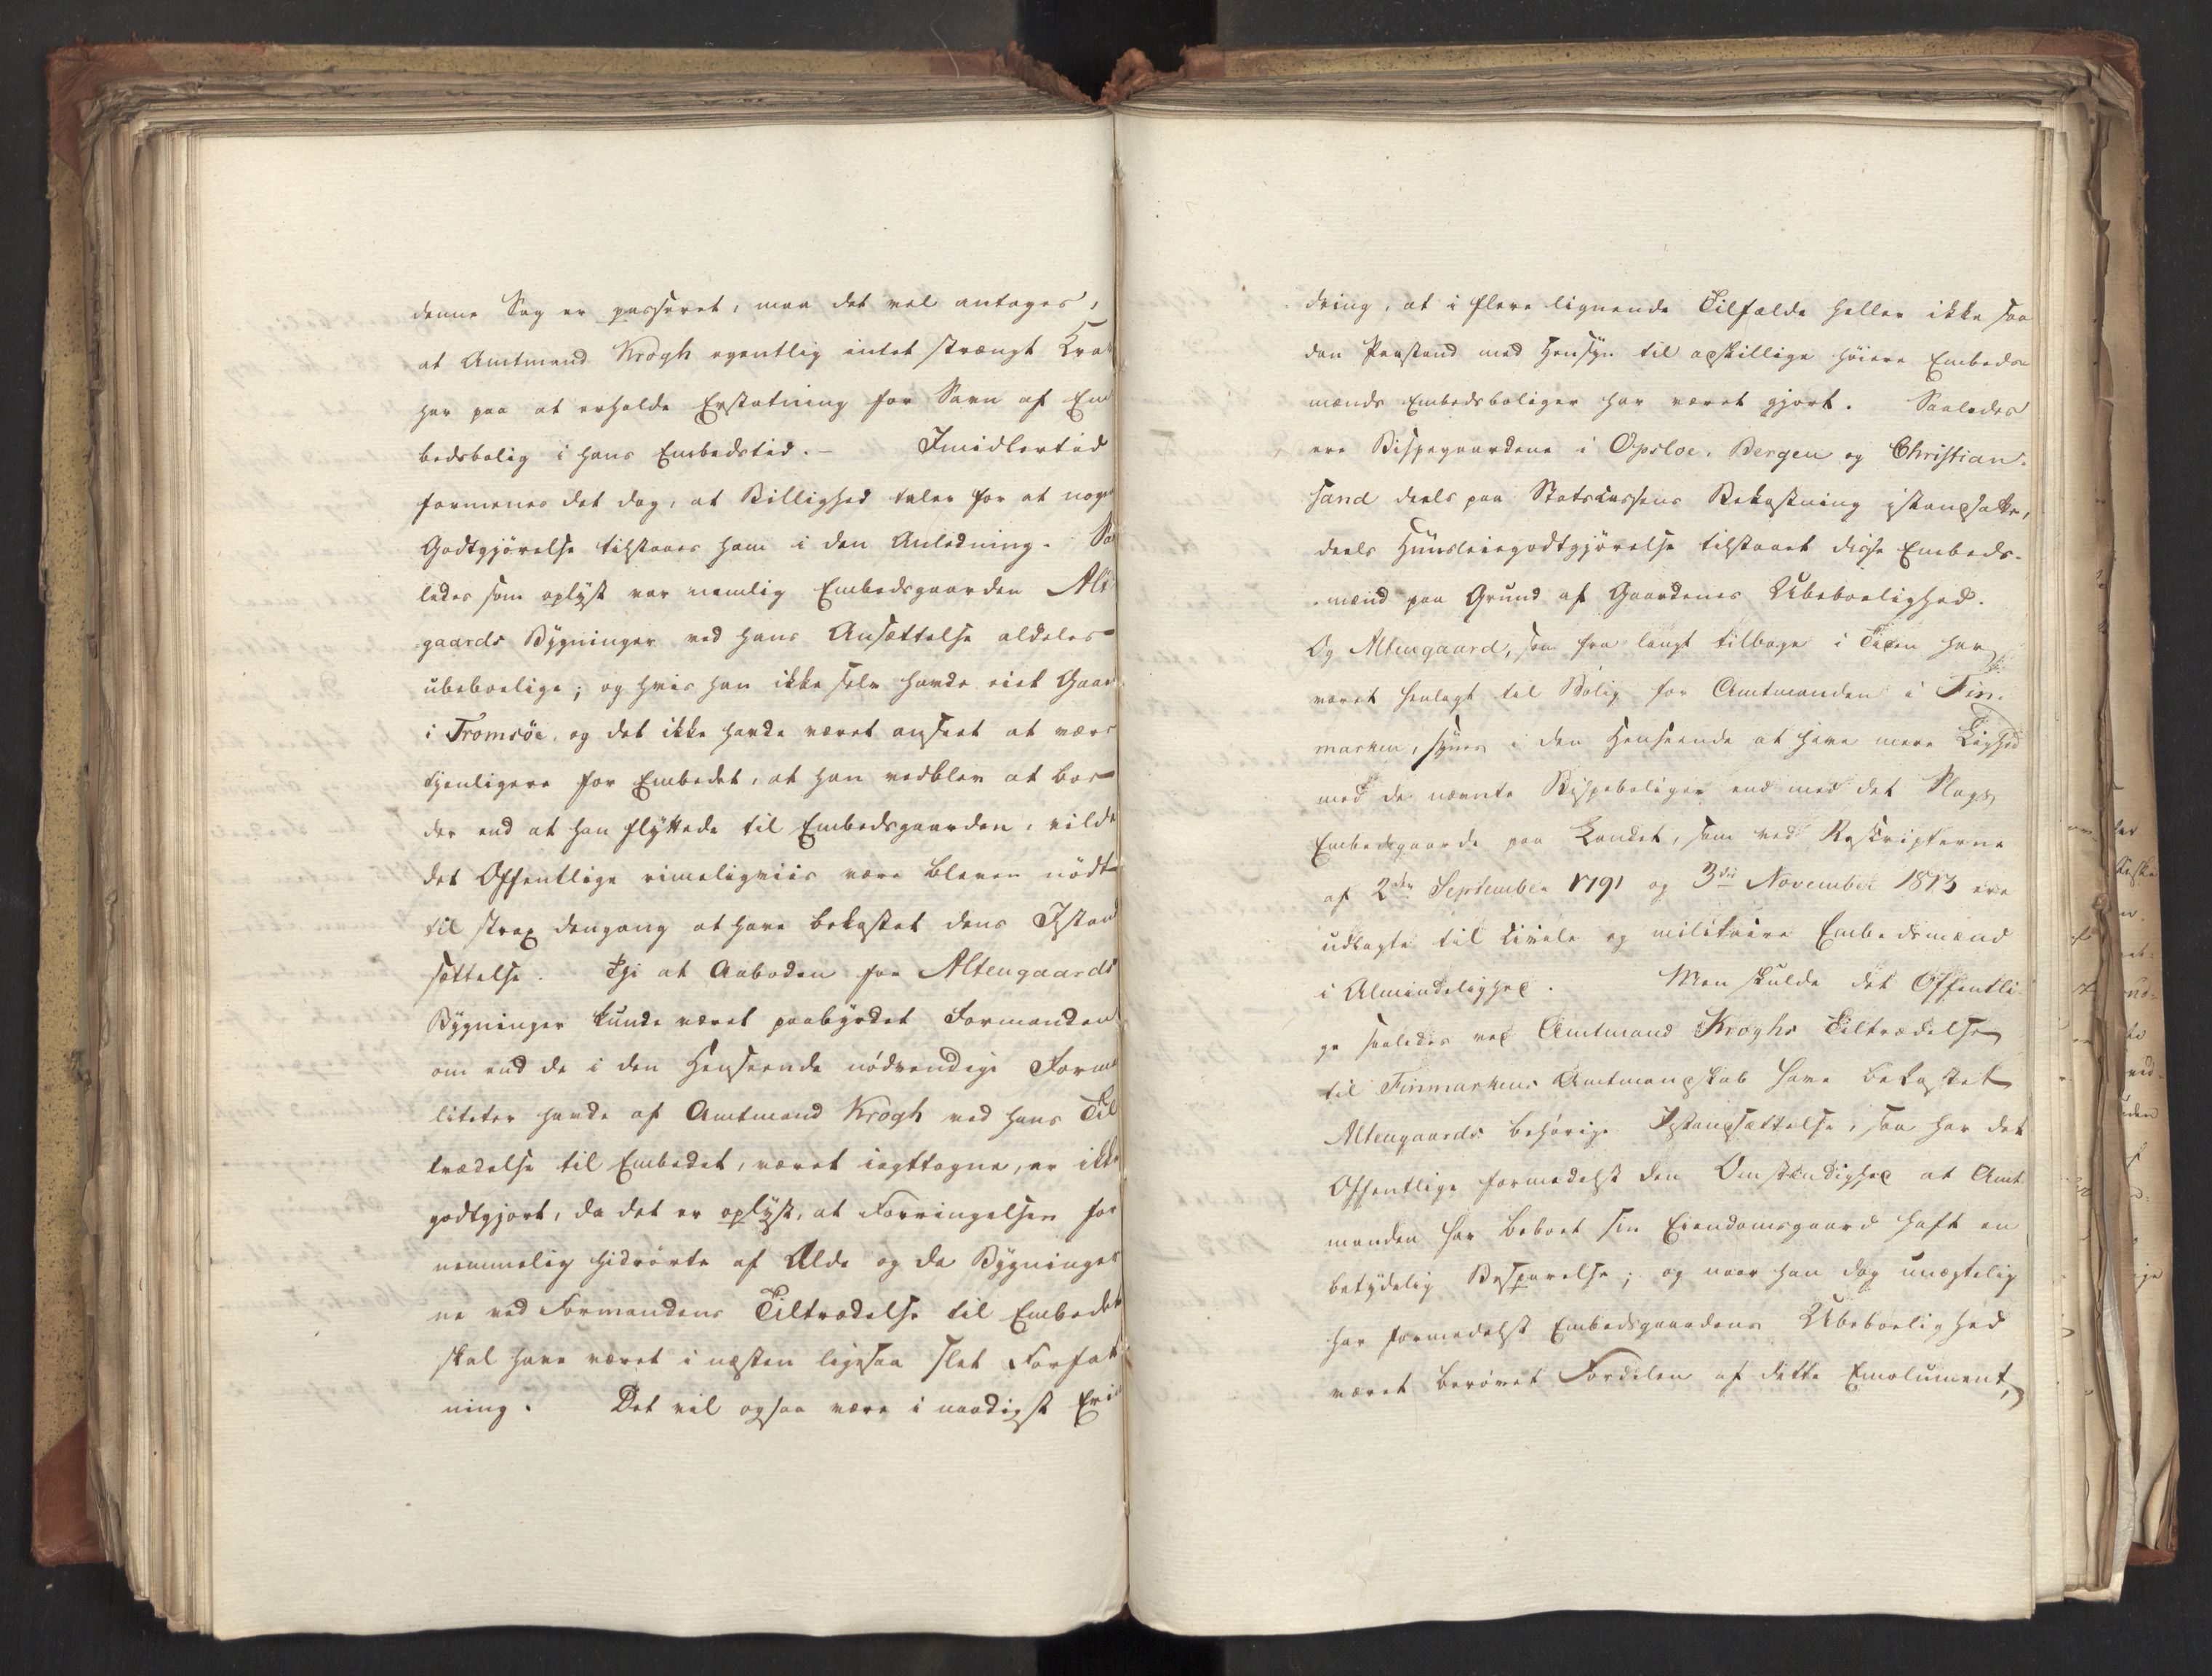 denne Sag er passeret, maa det vel antages,
at Amtmand Krogh egentlig intet strængt Krav
har paa at erholde Erstatning for Savn af Em
bedsbolig i hans Embedstid. – Imidlertid
formenes det dog, at Billighed taler for at nogen
Godtgjørelse tilstaaes ham i den Anledning. Saa
ledes som oplyst var nemlig Embedsgaarden Alten
gaards Bygninger ved hans Ansættelse aldeles
ubeboelige; og hvis han ikke selv havde eiet Gaard
i Tromsöe, og det ikke havde været anseet at være
tjenligere for Embedet, at han vedblev at boe
der end at han flyttede til Embedsgaarden, vilde
det Offentlige rimeligviis være bleven nödt
til strax dengang at have bekostet dens Istand
sættelse. Thi at Aaboden for Altengaards
Bygninger kunde været paabyrdet Formanden
om end de i den Henseende nödvendige Forma
liteter havde af Amtmand Krogh ved hans Til
trædelse til Embedet, været iagttagne, er ikke
godtgjort, da det er oplyst, at Forringelsen for
nemmelig hidrörte af Ælde og da Bygninger
ne ved Formandens Tiltrædelse til Embedet
skal have været i næsten ligesaa slet Forfat
ning. Det vil ogsaa være i naadigst Erin
dring, at i flere lignende Tilfælde heller ikke saa
dan Paastand med Hensyn til adskillige höiere Embeds
mænds Embedsboliger har været gjort. Saaledes
ere Bispegaardene i Opsloe, Bergen og Christian-
sand deels paa Statscassens Bekostning istandsatte,
deels Huusleiegodtgjörelse tilstaaet disse Embeds-
mænd paa Grund af Gaardenes Ubeboelighed.
Og Altengaard, som fra langt tilbage i Tiden har
været henlagt til Bolig for Amtmanden i Fin-
marken, synes i den Henseende at have mere Lighed
med de nævnte Bispeboliger end med det Slags
Embedsgaarde paa Landet, som ved Rescripterne
af 2den September 1791 og 3die November 1813 ere
udlagte til civile og militaire Embedsmænd
i Almindelighed. Men skulde det Offentli
ge saaledes ved Amtmand Kroghs Tiltrædelse
til Finmarkens Amtmandskab have bekostet
Altengaards behörige Istandsættelse, saa har det
Offentlige formedelst den Omstændighed at Amt
manden har beboet sin Eiendomsgaard haft en
betydelig Besparelse; og naar han dog unægtelig
har formedelst Embedsgaardens Ubeboelighed
været berövet Fordelen af dette Emolument,